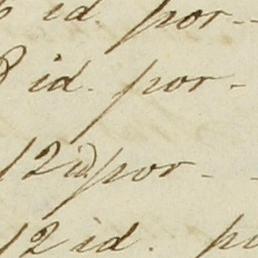 id. por--
8 id. por-
12 id por--
12 id. po